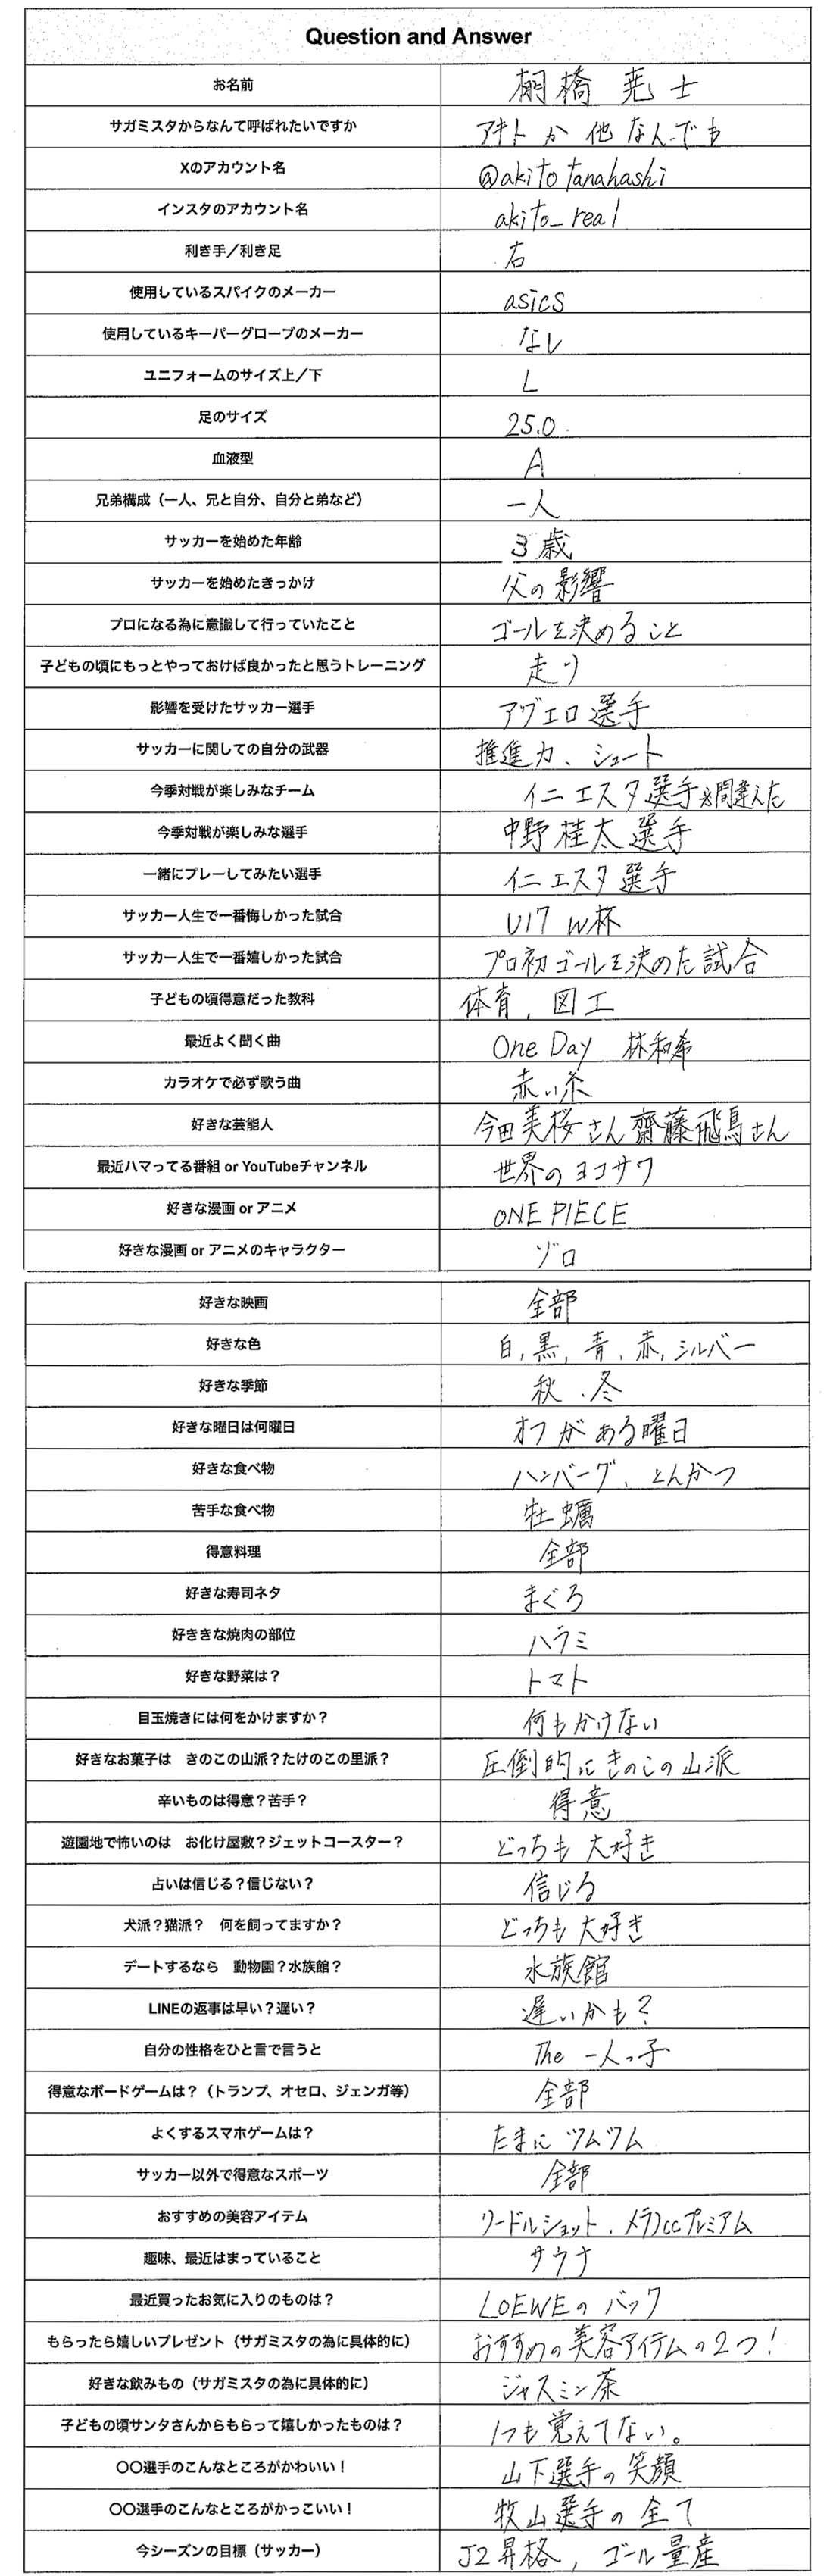 Question and Answer
お名前 棚橋 尭士
サガミスタからなんて呼ばれたいですか アキト か 他 なんでも
Xのアカウント名 @akito tanahashi
インスタのアカウント名 akito_real
利き手／利き足 右
使用しているスパイクのメーカー asics
使用しているキーパーグローブのメーカー なし
ユニフォームのサイズ上／下 L
足のサイズ 25.0
血液型 A
兄弟構成（一人、兄と自分、自分と弟など） 一人
サッカーを始めた年齢 3歳
サッカーを始めたきっかけ 父の影響
プロになる為に意識して行っていたこと ゴールを決めること
子どもの頃にもっとやっておけば良かったと思うトレーニング 走り
影響を受けたサッカー選手 アグエロ選手
サッカーに関しての自分の武器 推進力、シュート
今季対戦が楽しみなチーム イニエスタ選手※間違えた
今季対戦が楽しみな選手 中野桂太選手
一緒にプレーしてみたい選手 イニエスタ選手
サッカー人生で一番悔しかった試合 U17 W杯
サッカー人生で一番嬉しかった試合 プロ初ゴールを決めた試合
子どもの頃得意だった教科 体育, 図工
最近よく聞く曲 One Day 林和希
カラオケで必ず歌う曲 赤い糸
好きな芸能人 今田美桜さん 齋藤飛鳥さん
最近ハマってる番組 or YouTubeチャンネル 世界のヨコサワ
好きな漫画 or アニメ ONE PIECE
好きな漫画 or アニメのキャラクター ゾロ
好きな映画 全部
好きな色 白, 黒, 青, 赤, シルバー
好きな季節 秋、冬
好きな曜日は何曜日 オフがある曜日
好きな食べ物 ハンバーグ、とんかつ
苦手な食べ物 牡蠣
得意料理 全部
好きな寿司ネタ まぐろ
好ききな焼肉の部位 ハラミ
好きな野菜は？ トマト
目玉焼きには何をかけますか？ 何もかけない
好きなお菓子は きのこの山派？たけのこの里派？ 圧倒的にきのこの山派
辛いものは得意？苦手？ 得意
遊園地で怖いのは お化け屋敷？ジェットコースター？ どっちも大好き
占いは信じる？信じない？ 信じる
犬派？猫派？ 何を飼ってますか？ どっちも大好き
デートするなら 動物園？水族館？ 水族館
LINEの返事は早い？遅い？ 遅いかも？
自分の性格をひと言で言うと The 一人っ子
得意なボードゲームは？（トランプ、オセロ、ジェンガ等） 全部
よくするスマホゲームは？ たまにツムツム
サッカー以外で得意なスポーツ 全部
おすすめの美容アイテム リードルショット、メラノccプレミアム
趣味、最近はまっていること サウナ
最近買ったお気に入りのものは？ LOEWEのバッグ
もらったら嬉しいプレゼント（サガミスタの為に具体的に） おすすめの美容アイテムの2つ！
好きな飲みもの（サガミスタの為に具体的に） ジャスミン茶
子どもの頃サンタさんからもらって嬉しかったものは？ 1つも覚えてない。
〇〇選手のこんなところがかわいい！ 山下選手の笑顔
〇〇選手のこんなところがかっこいい！ 牧山選手の全て
今シーズンの目標（サッカー） J2昇格, ゴール量産